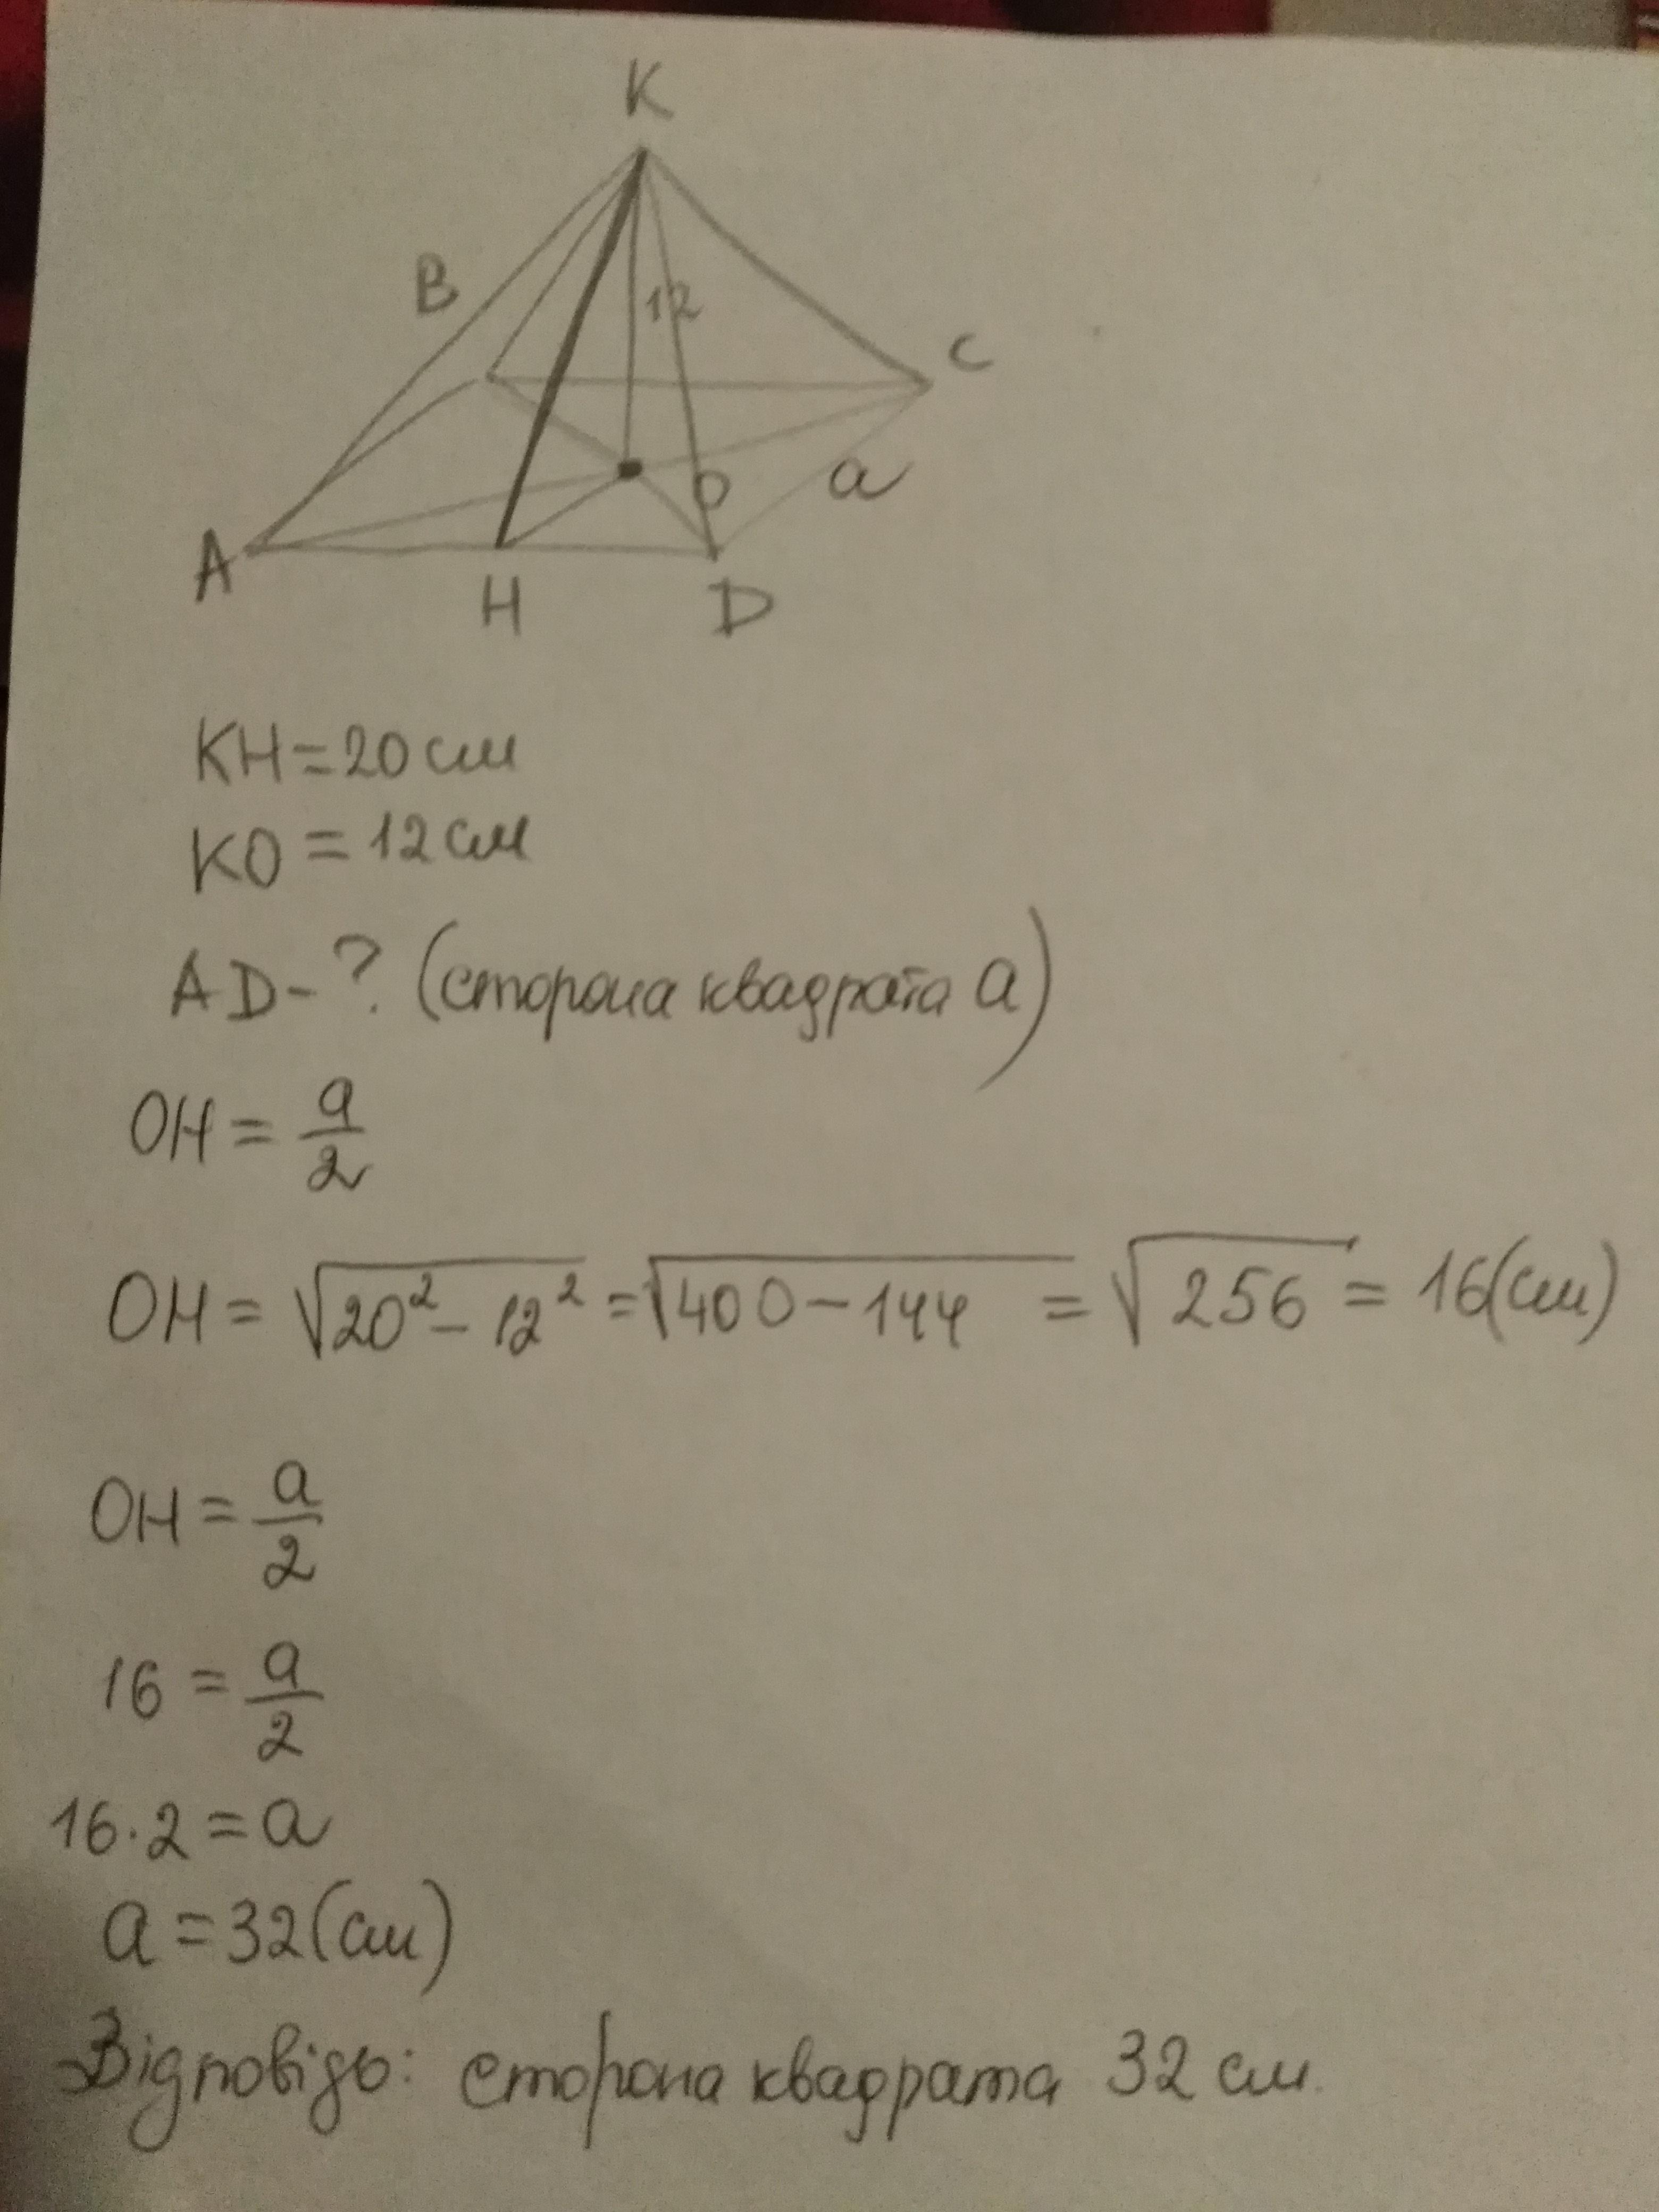 K
B
12
C
O
a
A
H
D
KH=20см
KO=12см
AD-? (сторона квадрата a)
OH = a/2
OH = √20²-12² = √400-144 = √256 = 16(см)
OH = a/2
16 = a/2
16·2=a
a=32(см)
Відповідь: сторона квадрата 32 см.